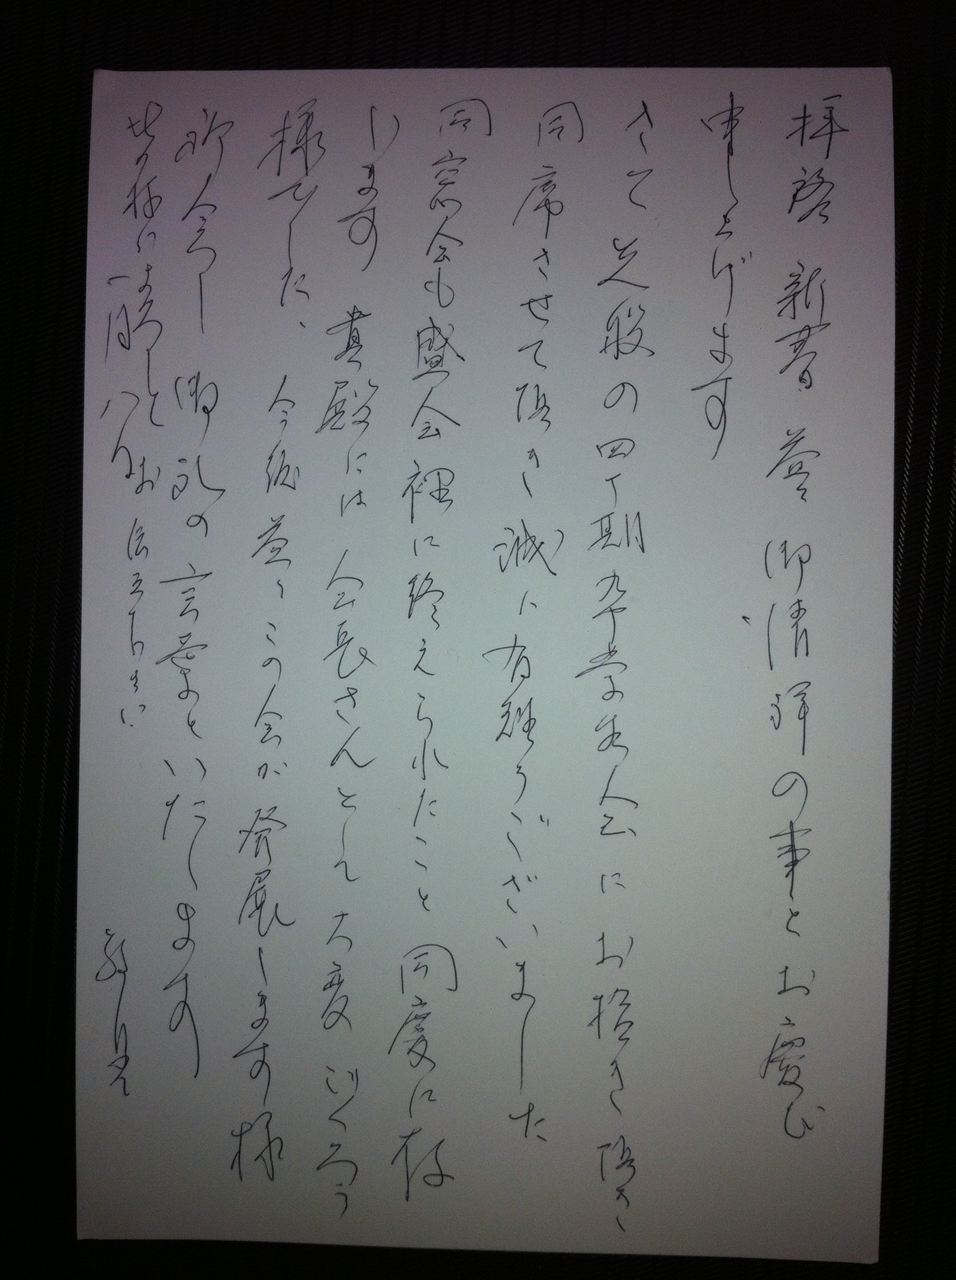 拝啓 新春 益々御清祥の事とお慶び
申し上げます
さて先般の四十期 学生会にお招き頂き
同席させて頂き誠に有難うございました
同窓会も盛会裡に終えられたこと 同慶に存
じます 貴殿には会長さんとして大変ごくろう
様でした、今後益々この会が発展します様
御礼の言葉といたします
皆の様によろしくとお伝え下さい